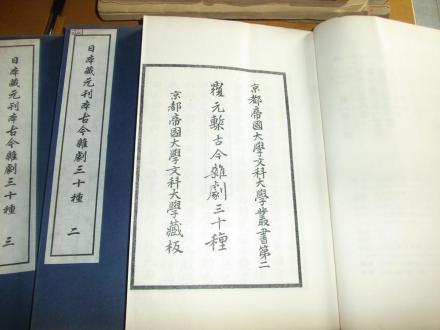 京都帝國大學文科大學叢書第二
覆元槧古今雜劇三十種
京都帝國大學文科大學藏板
日本藏元刊本古今雜劇三十種 二
日本藏元刊本古今雜劇三十種 三